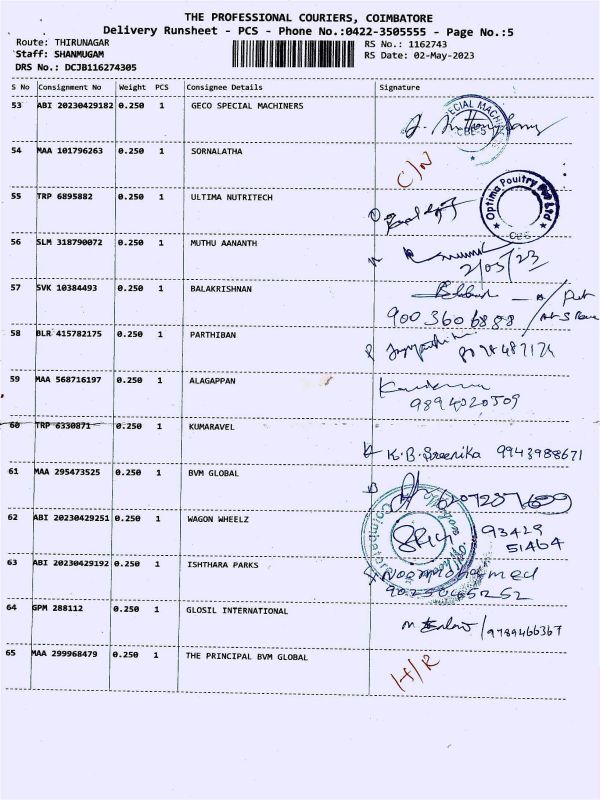 THE PROFESSIONAL COURIERS, COIMBATORE
Delivery Runsheet - PCS - Phone No.:0422-3505555 - Page No.:5
Route: THIRUNAGAR
RS No.: 1162743
Staff: SHANMUGAM
RS Date: 02-May-2023
DRS No.: DCJB116274305
S No Consignment No Weight PCS Consignee Details Signature
53 ABI 20230429182 0.250 1 GECO SPECIAL MACHINERS
54 MAA 101796263 0.250 1 SORNALATHA C/N
55 TRP 6895882 0.250 1 ULTIMA NUTRITECH Optima Poultry Pvt Ltd
56 SLM 318790072 0.250 1 MUTHU AANANTH 2/05/23
57 SVK 10384493 0.250 1 BALAKRISHNAN
900 360 6888
58 BLR 415782175 0.250 1 PARTHIBAN
59 MAA 568716197 0.250 1 ALAGAPPAN
9894020509
60 TRP 6330871 0.250 1 KUMARAVEL K.B.Sreenika 9943988671
61 MAA 295473525 0.250 1 BVM GLOBAL
62 ABI 20230429251 0.250 1 WAGON WHEELZ 93429
51464
63 ABI 20230429192 0.250 1 ISHTHARA PARKS Noor mohamed
64 GPM 288112 0.250 1 GLOSIL INTERNATIONAL 9789466367
65 MAA 299968479 0.250 1 THE PRINCIPAL BVM GLOBAL H/R